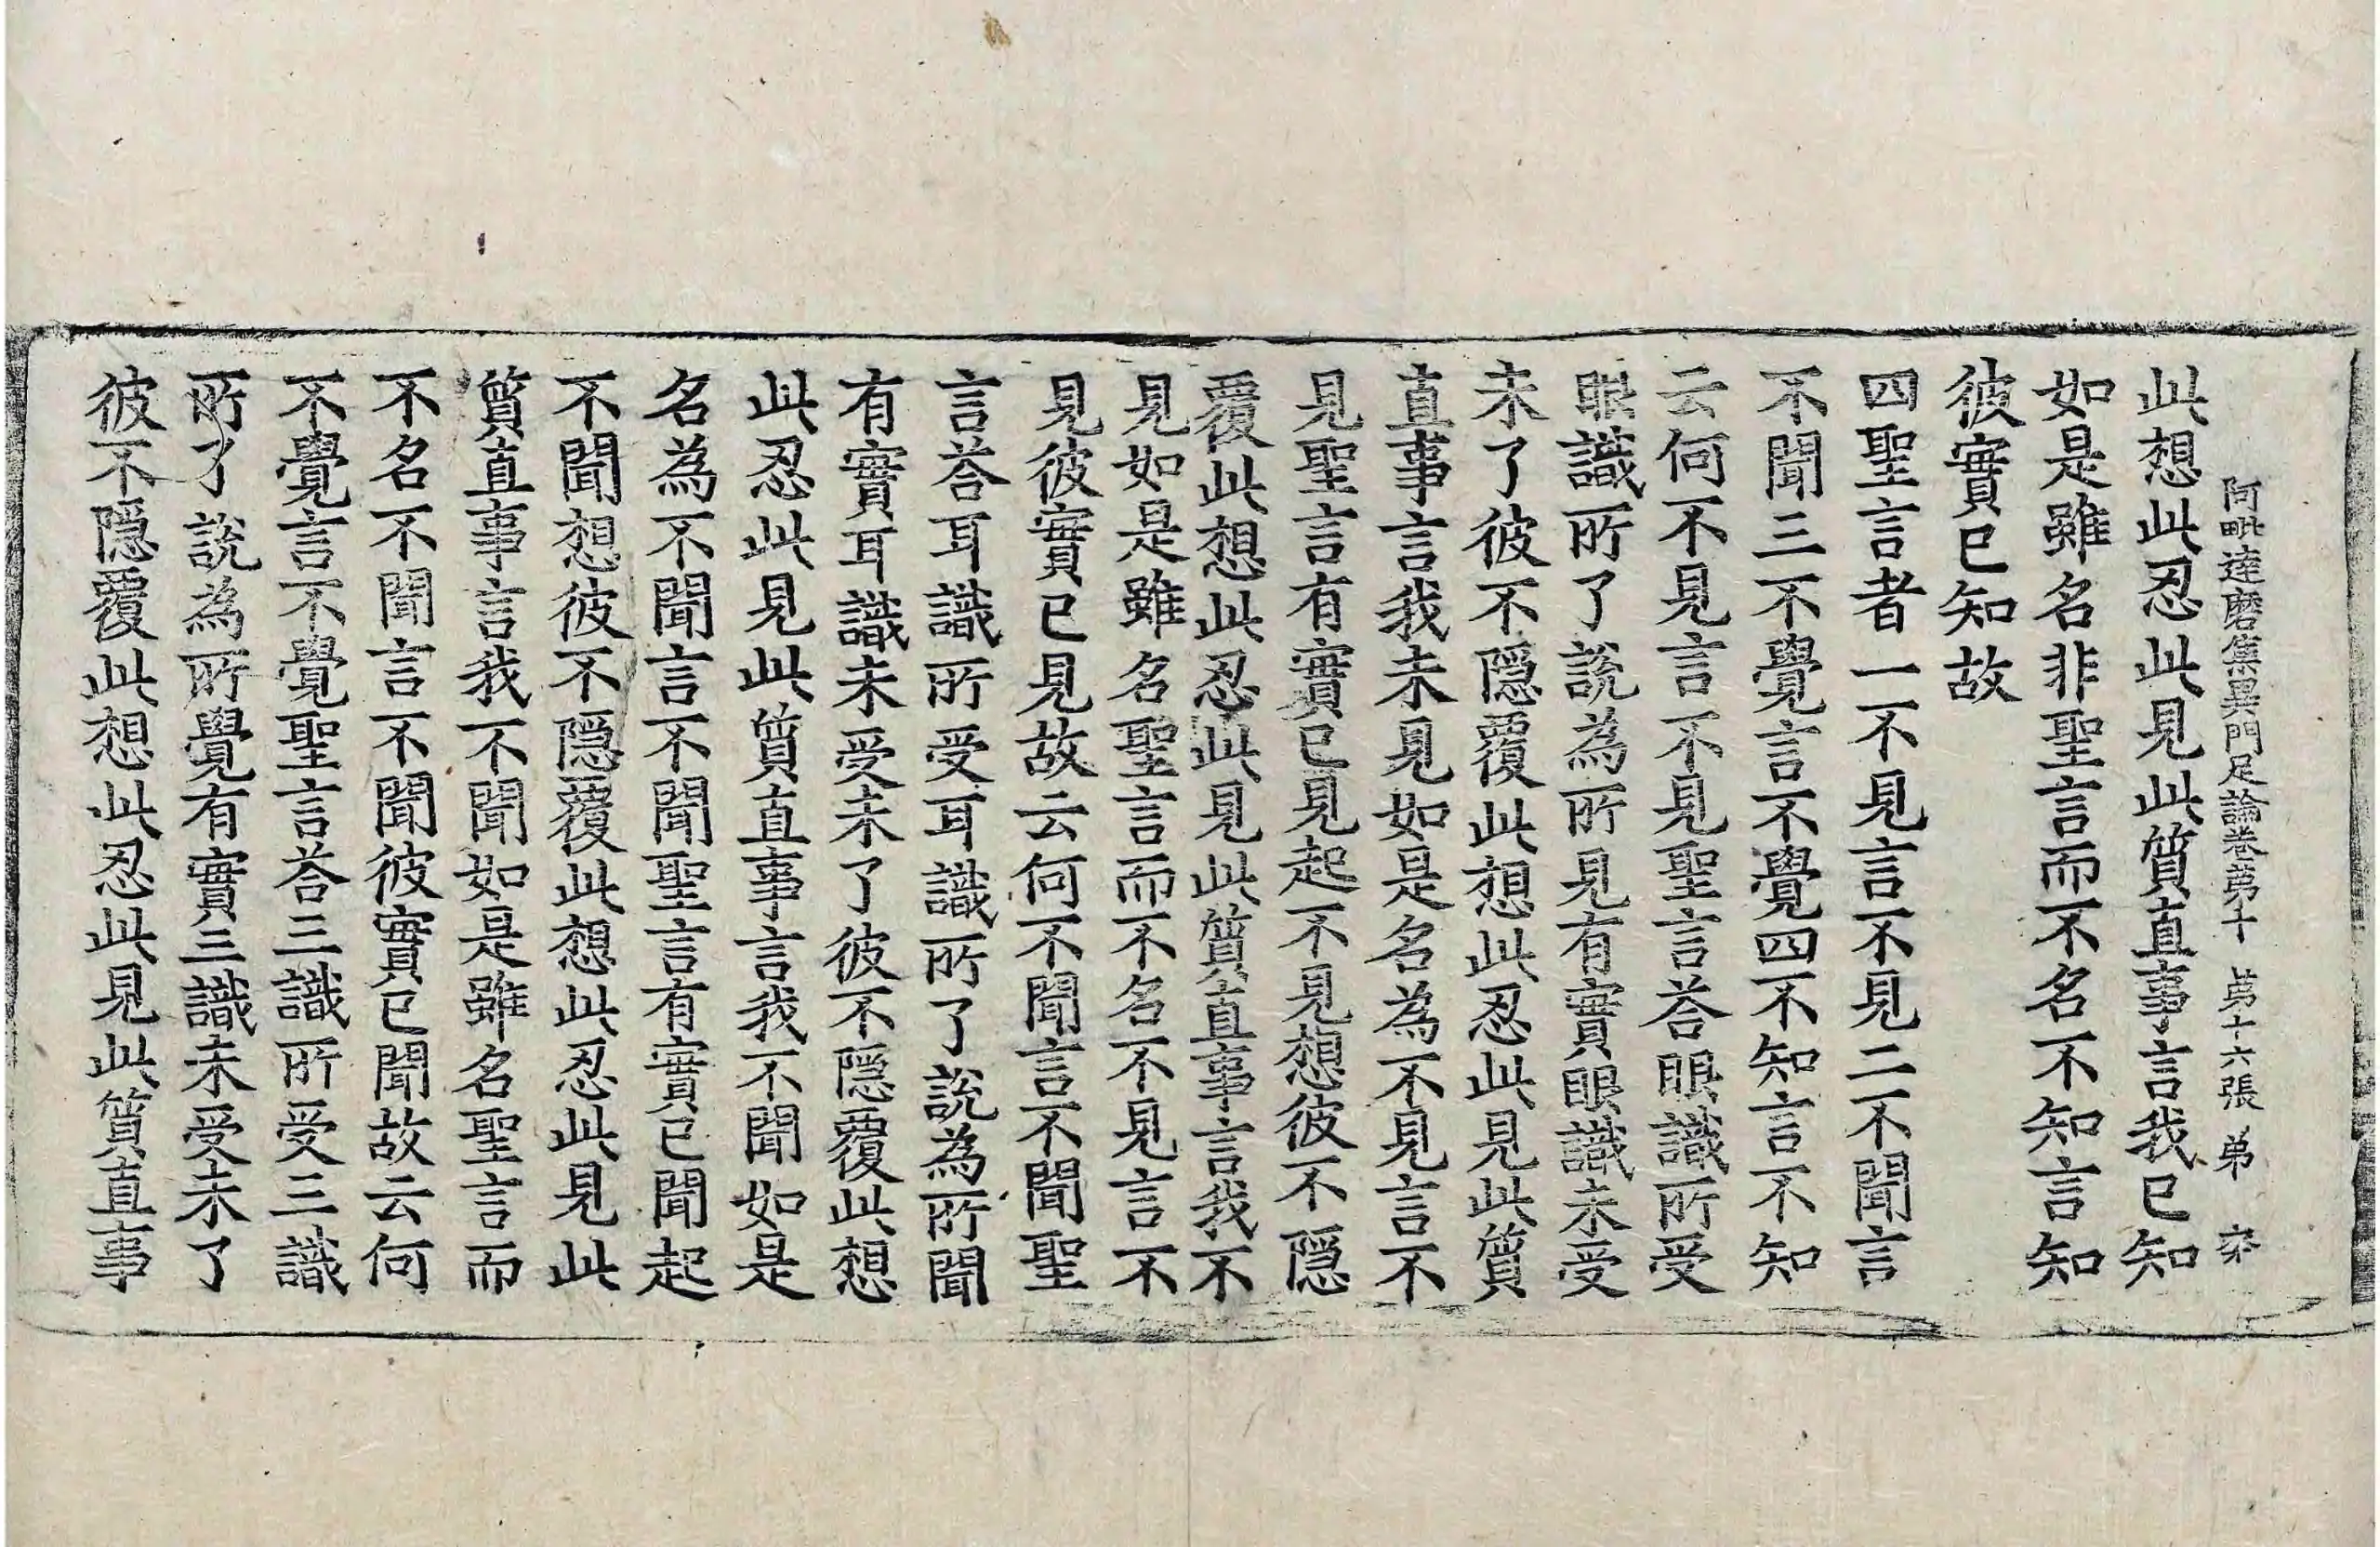 阿毗達磨集異門足論卷第十　第十六張　弟
此想此忍此見此質直事言我已知
如是雖名非聖言而不名不知言知
彼實已知故
四聖言者一不見言不見二不聞言
不聞三不覺言不覺四不知言不知
云何不見言不見聖言荅眼識所受
眼識所了說為所見有實眼識未受
未了彼不隱覆此想此忍此見此質
直事言我未見如是名為不見言不
見聖言有實已見起不見想彼不隱
覆此想此忍此見此質直事言我不
見如是雖名聖言而不名不見言不
見彼實已見故云何不聞言不聞聖
言荅耳識所受耳識所了說為所聞
有實耳識未受未了彼不隱覆此想
此忍此見此質直事言我不聞如是
名為不聞言不聞聖言有實已聞起
不聞想彼不隱覆此想此忍此見此
質直事言我不聞如是雖名聖言而
不名不聞言不聞彼實已聞故云何
不覺言不覺聖言荅三識所受三識
所了說為所覺有實三識未受未了
彼不隱覆此想此忍此見此質直事